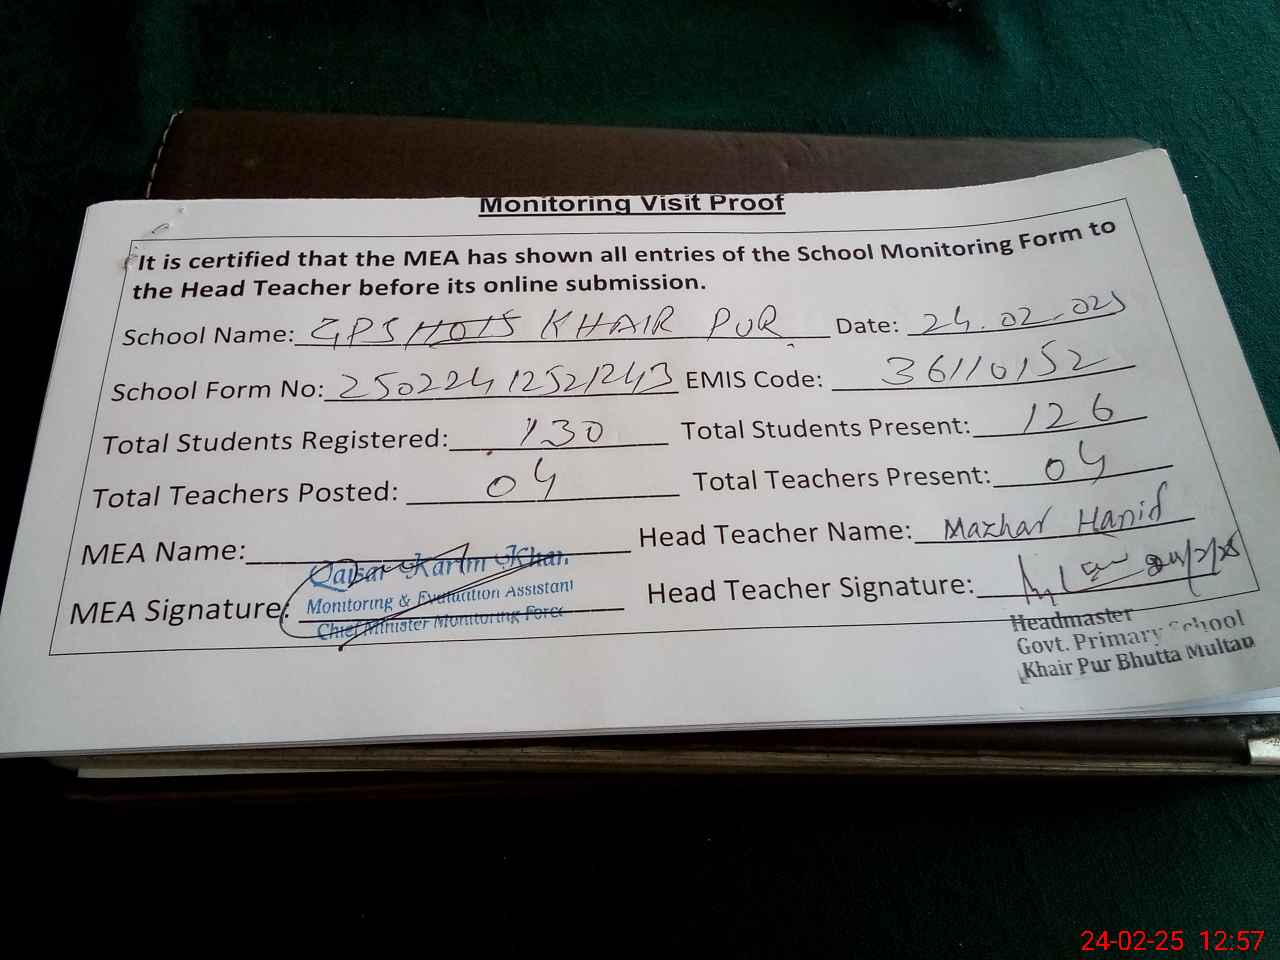 Monitoring Visit Proof
It is certified that the MEA has shown all entries of the School Monitoring Form to
the Head Teacher before its online submission.
School Name: GPS KHAIR PUR Date: 24.02.025
School Form No: 25022412521243 EMIS Code: 36110152
Total Students Registered: 130 Total Students Present: 126
Total Teachers Posted: 04 Total Teachers Present: 04
MEA Name: Head Teacher Name: Mazhar Hanif
Qaisar Karim Khan
MEA Signature: Monitoring & Evaluation Assistant Head Teacher Signature: 24/2/25
Chief Minister Monitoring Force
Headmaster
Govt. Primary School
Khair Pur Bhutta Multan
24-02-25 12:57